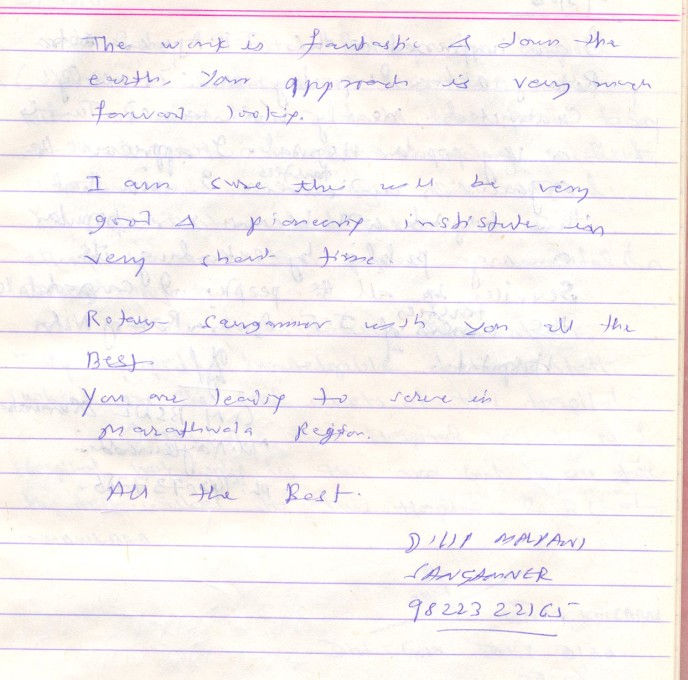 The work is fantastic & down the
earth. Your approach is very much
forward lookig.
I am sure this will be very
good & pioneerig institute in
very short time
Rotary Sangamner wish you all the
Best
You are leadig to serve in
Marathwada Region.
All the Best.
DILIP MALPANI
SANGAMNER
98223 22165